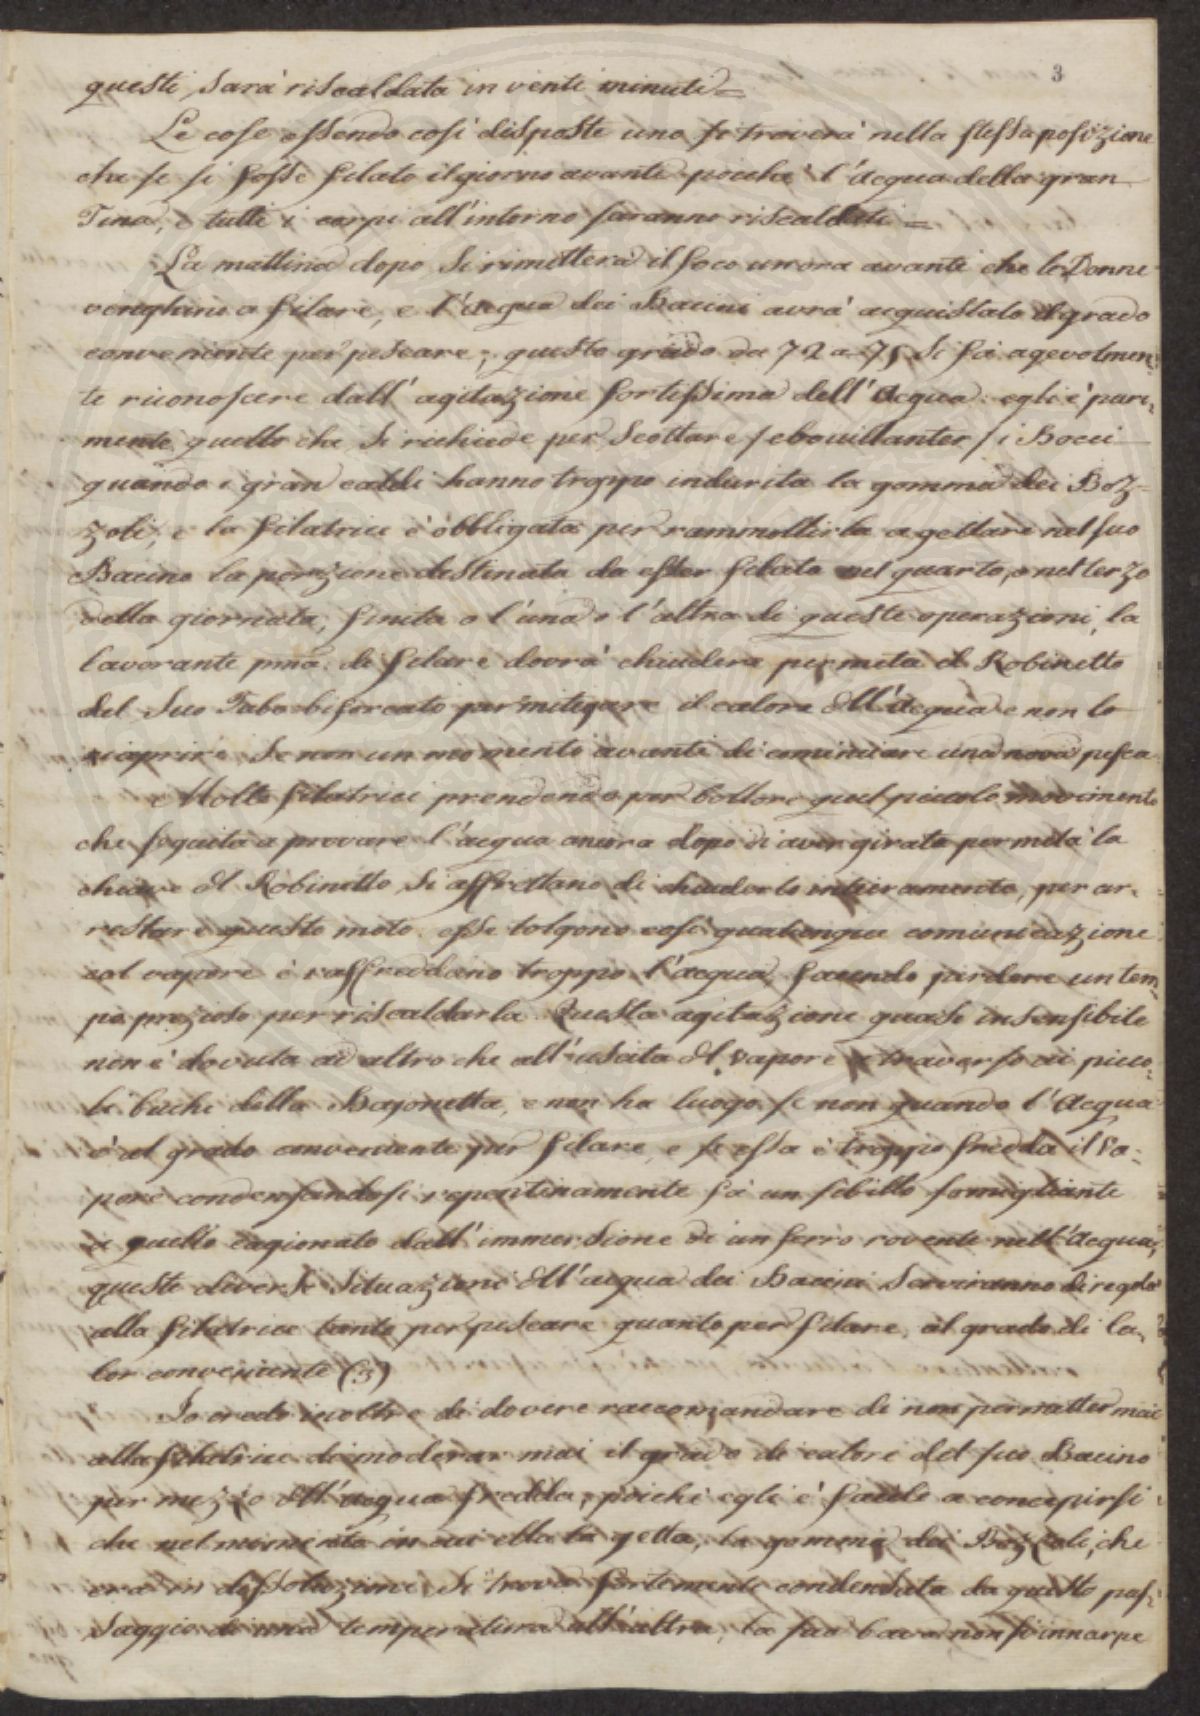 3
questi, sarà riscaldata in venti minuti =
Le cose essendo così disposte uno si troverà nella stessa posizione
che se si fosse filato il giorno avanti poichè l'acqua della gran
Tina, e tutti i corpi all'intorno saranno riscaldati =
La mattina dopo si rimetterà il foco un'ora avanti che le Donne
venghano a filare, e l'acqua dei Bacini avrà acquistato il grado
conveniente per pescare; questo grado da 72 a 75 si fà agevolmen=
te riconoscere dall'agitazione fortissima dell'Acqua: egli è pari=
mente quello che si richiede per scottare /ebouillanter/ i Bocci
quando i gran caldi hanno troppo indurita la gomma dei Boz=
zoli, e la filatrice è obbligata per rammollirla a gettare nel suo
Bacino la porzione destinata da esser filata nel quarto, o nel terzo
della giornata, finita o l'una o l'altra di queste operazioni, la
lavorante pma. di filare dovrà chiudere per metà il Robinetto
del suo Tubo biforcato per mitigare il calore dell'acqua e non lo
riaprire se non un momento avanti di cominciare una nova pesca
Molte filatrici prendendo per bollore quel piccolo movimento
che seguita a provare l'acqua ancora dopo di aver girata per metà la
chiave del Robinetto si affrettano di chiuderlo intieramente, per ar=
restare questo moto: esse tolgono così qualunque comunicazione
col vapore è raffreddano troppo l'acqua, facendo perdere un tem=
po prezioso per riscaldarla. Questa agitazione quasi insensibile
non è dovuta ad altro che all'uscita del vapore a traverso ai picco=
li buchi della Bajonetta, e non ha luogo se non quando l'Acqua
è al grado conveniente per filare, e se essa è troppo fredda il Va=
pore condensandosi repentinamente fà un sibillo somigliante
a quello cagionato dall'immersione di un ferro rovente nell'Acqua;
queste diverse situazioni dell'acqua dei Bacini serviranno di regola
alla filatrice tanto per pescare quanto per filare, al grado di ca=
lor conveniente (3)
Io credo inoltre di dovere raccomandare di non permetter mai
alla filatrice di moderar mai il grado di calore del suo Bacino
per mezzo dell'acqua fredda; poichè egli è facile a concepirsi
che nel momento in cui ella la getta, la gomma dei Bozzoli, che
era in dissoluzione si trova fortemente condensata da questo pas=
saggio di una temperatura all'altra, la sua bava non si innarpe